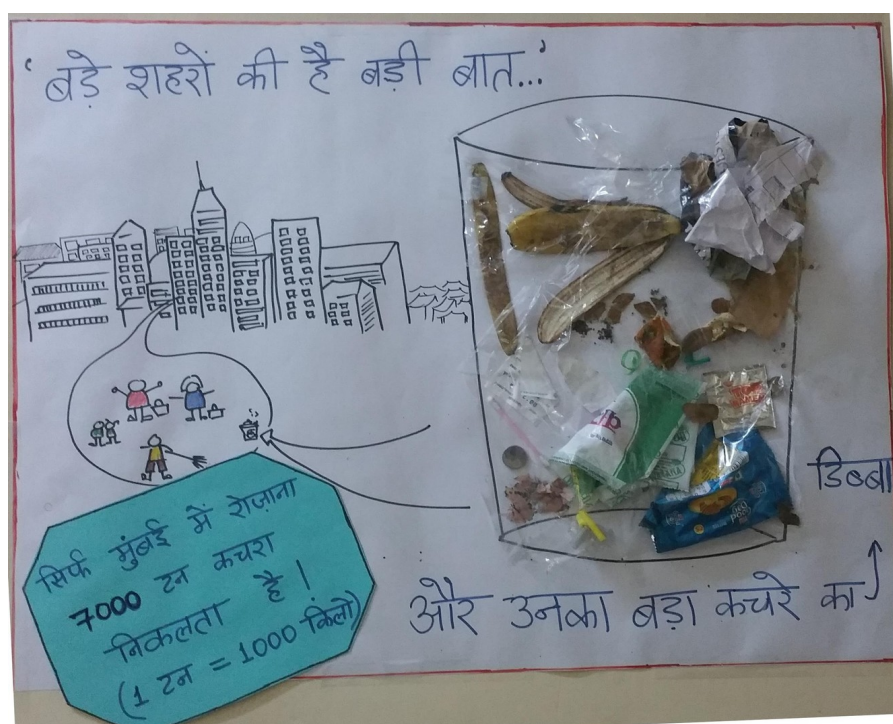 'बड़े शहरों की है बड़ी बात...'
डिब्बा
और उनका बड़ा कचरे का
सिर्फ मुंबई में रोज़ाना
7000 टन कचरा
निकलता है!
(1 टन = 1000 किलो)